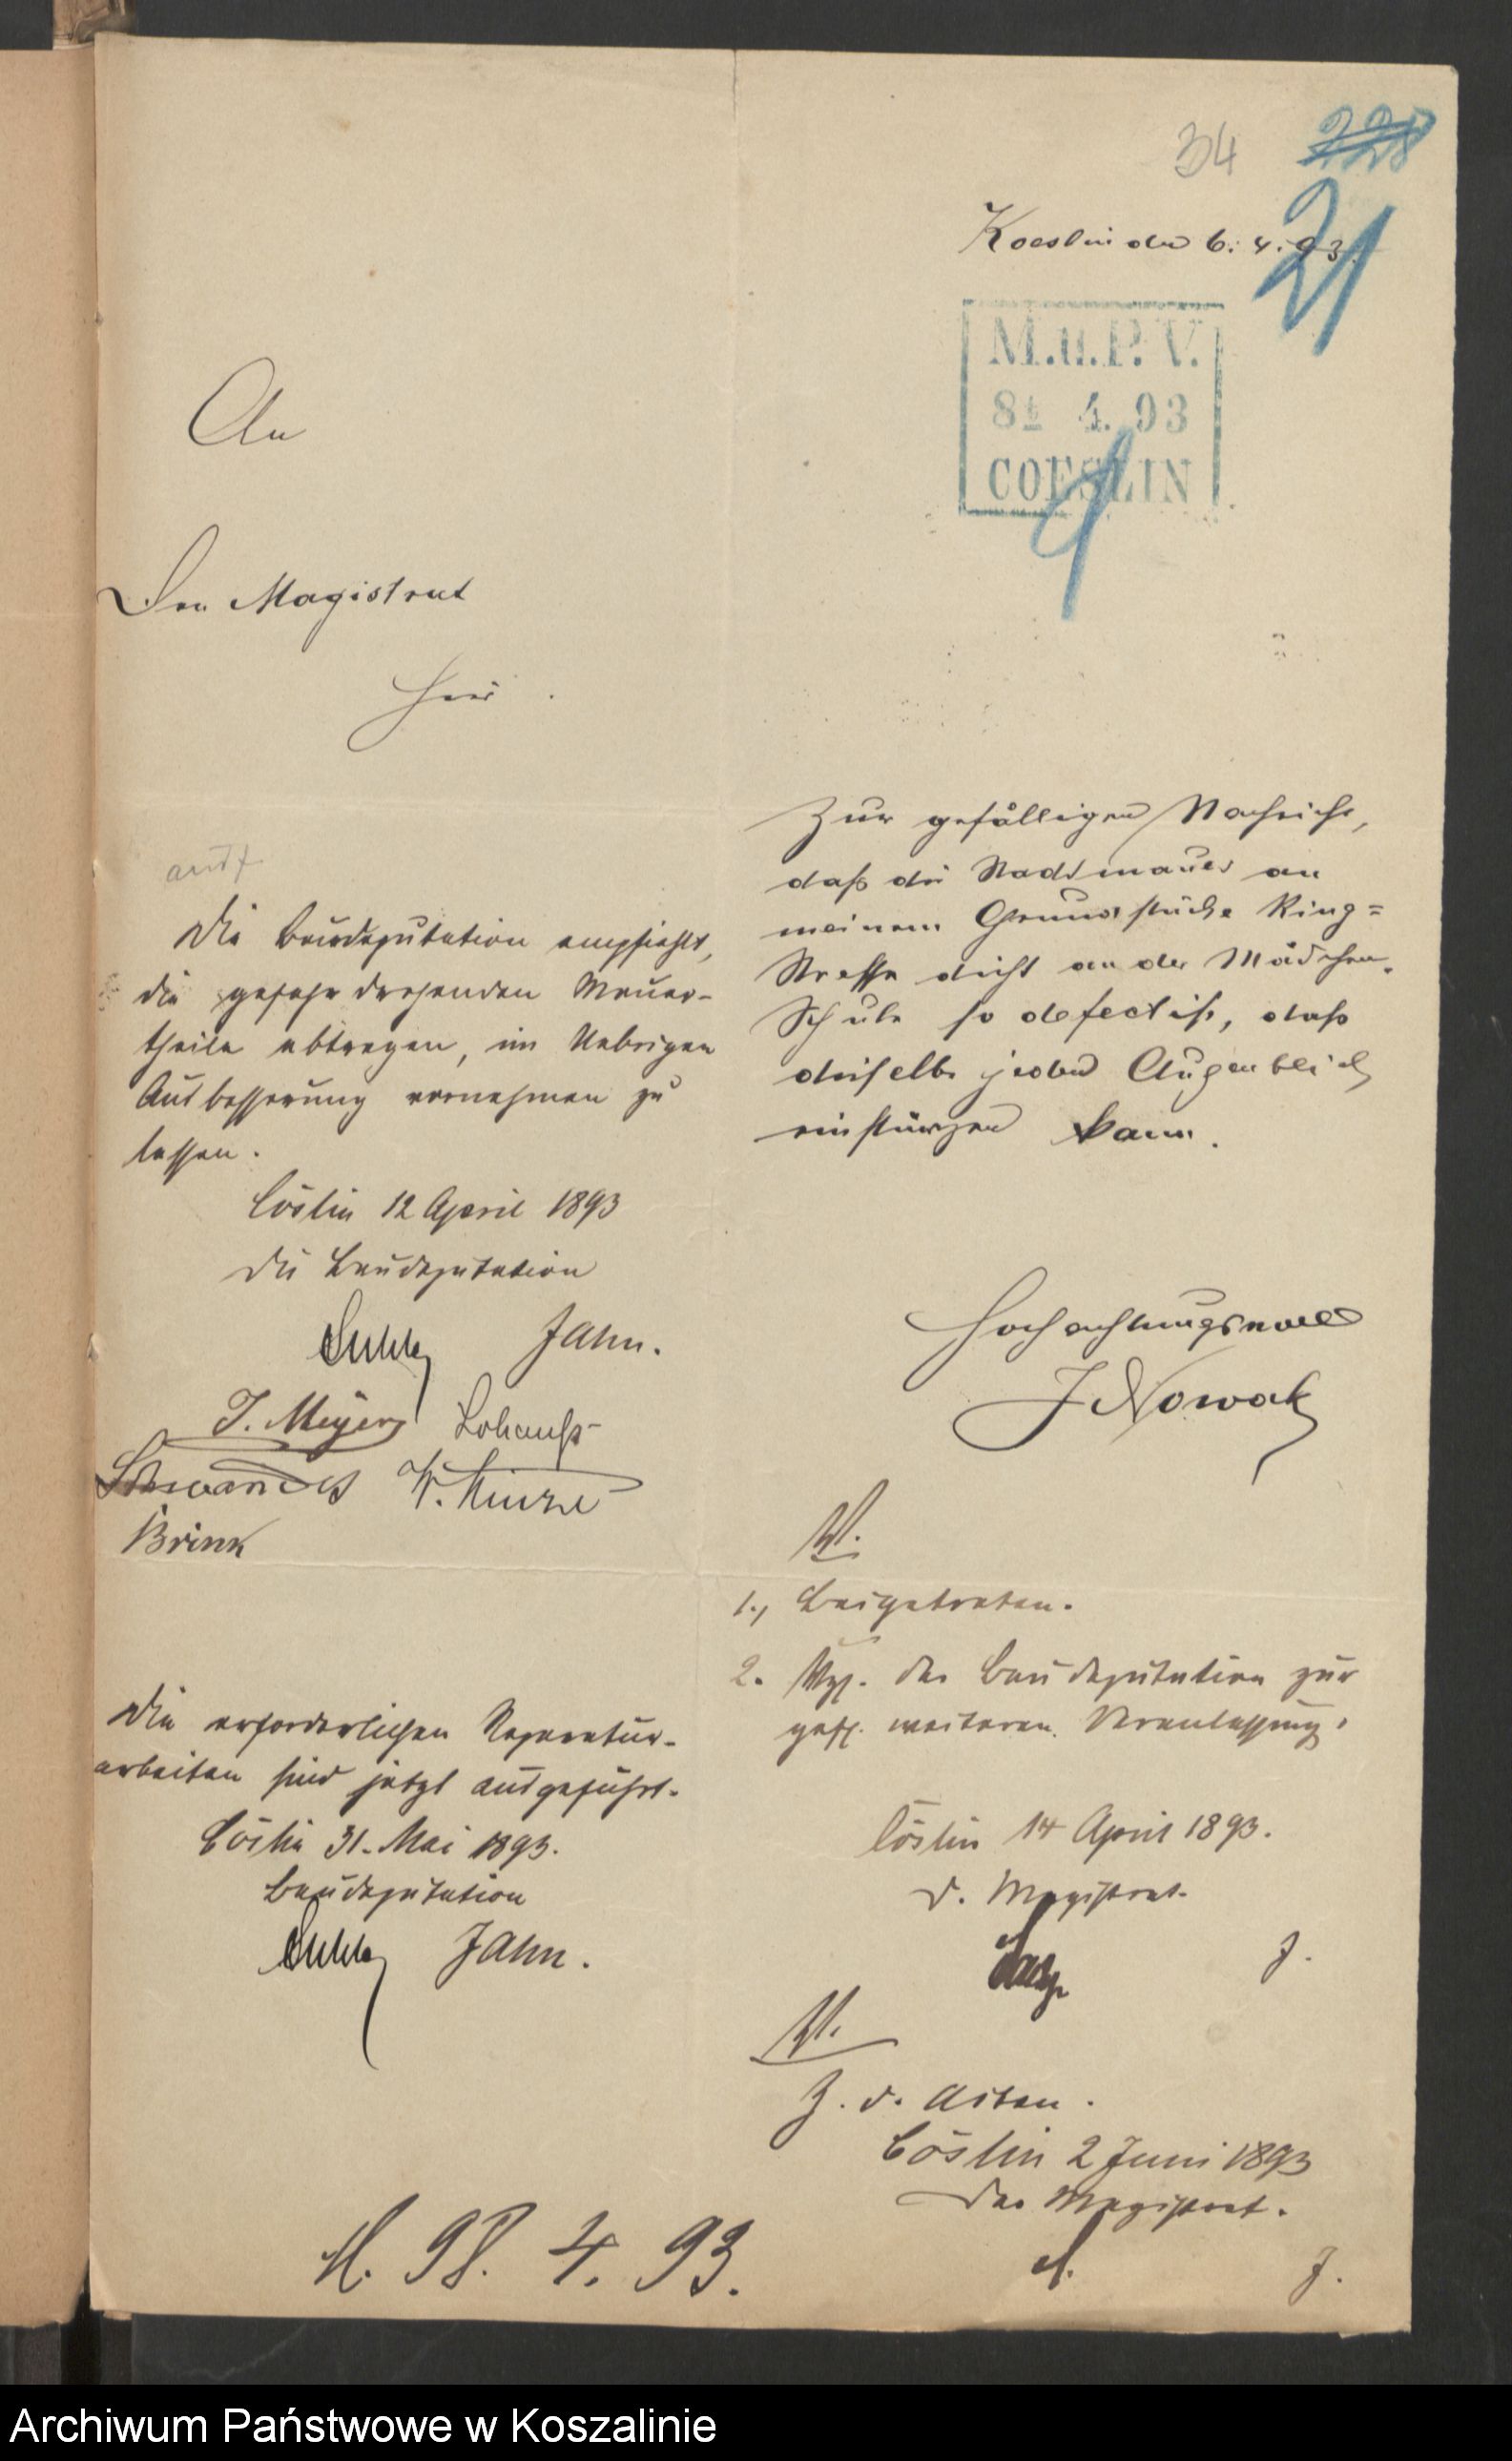 34
228
21
Koeslin den 6. 4. 93.
M. u. P. V.
8t 4. 93
COESLIN
An
Den Magistrat
hier.
Zur gefälligen Nachricht,
daß die Stadtmauer an
meinem Grundstücke Ring=
Strasse dicht an der Mädchen-
Schule so defect ist, daß
dieselbe jeden Augenblick
einstürzen kann.
Hochachtungsvoll
J Nowak
Die Baudeputation empfiehlt,
die gefahrdrohenden Mauer-
theile abtragen, im Uebrigen
Ausbesserung vornehmen zu
lassen.
Cöslin 12 April 1893
Die Baudeputation
Jahn.
J. Meyer
Schwandes W. Kunze
Brink
V.
1., Beigetreten.
2. der Baudeputation zur
gefl. weiteren Veranlassung.
Cöslin 14 April 1893.
D. Magistrat.
J.
Die erforderlichen Reparatur-
arbeiten sind jetzt ausgeführt.
Cöslin 31. Mai 1893.
Baudeputation
Jahn.
V.
Z. d. Akten.
Cöslin 2 Juni 1893
Der Magistrat.
J.
M. 98. 4. 93.
Archiwum Państwowe w Koszalinie